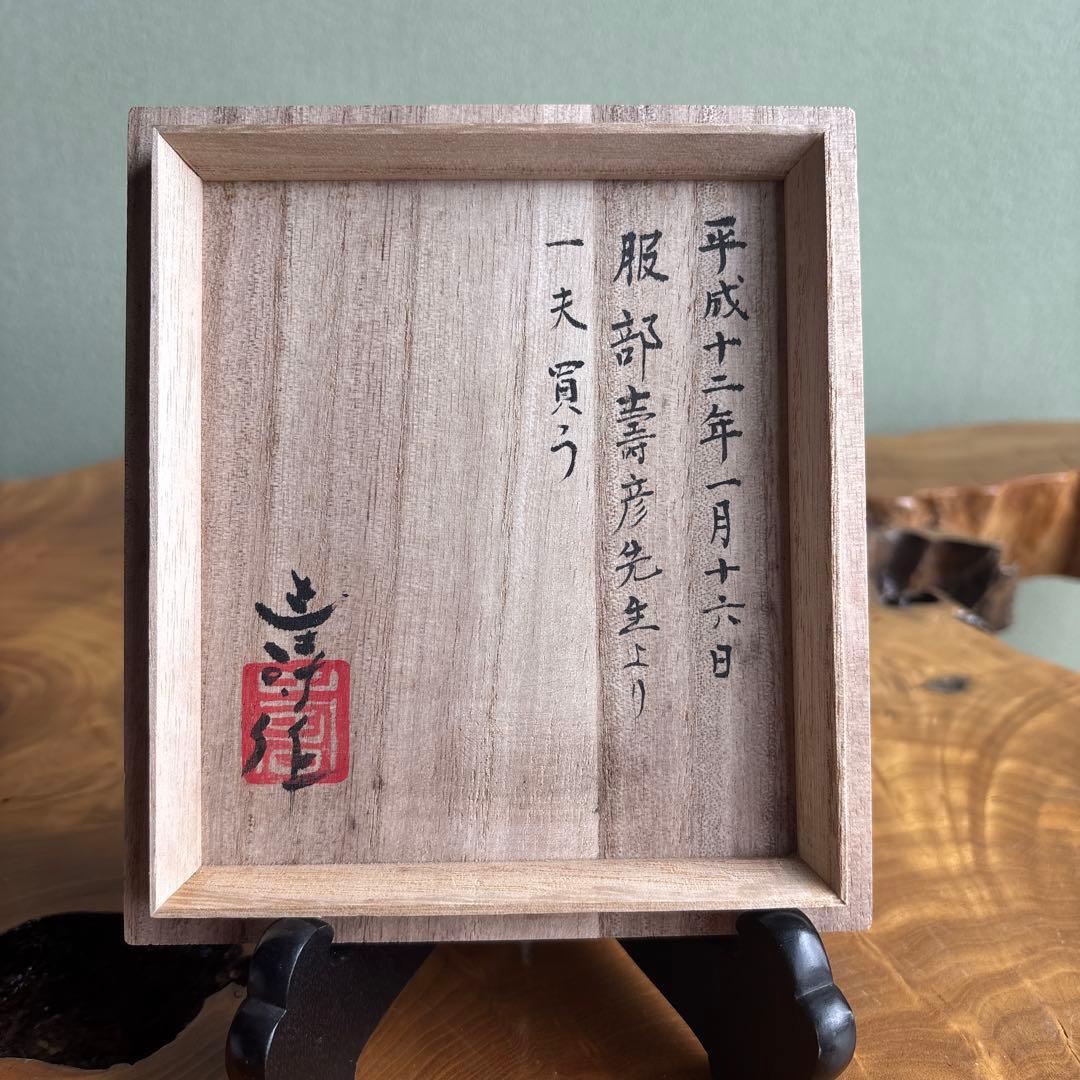 平成十二年一月十六日
服部壽彦先生より
一夫買う
壽作
壽